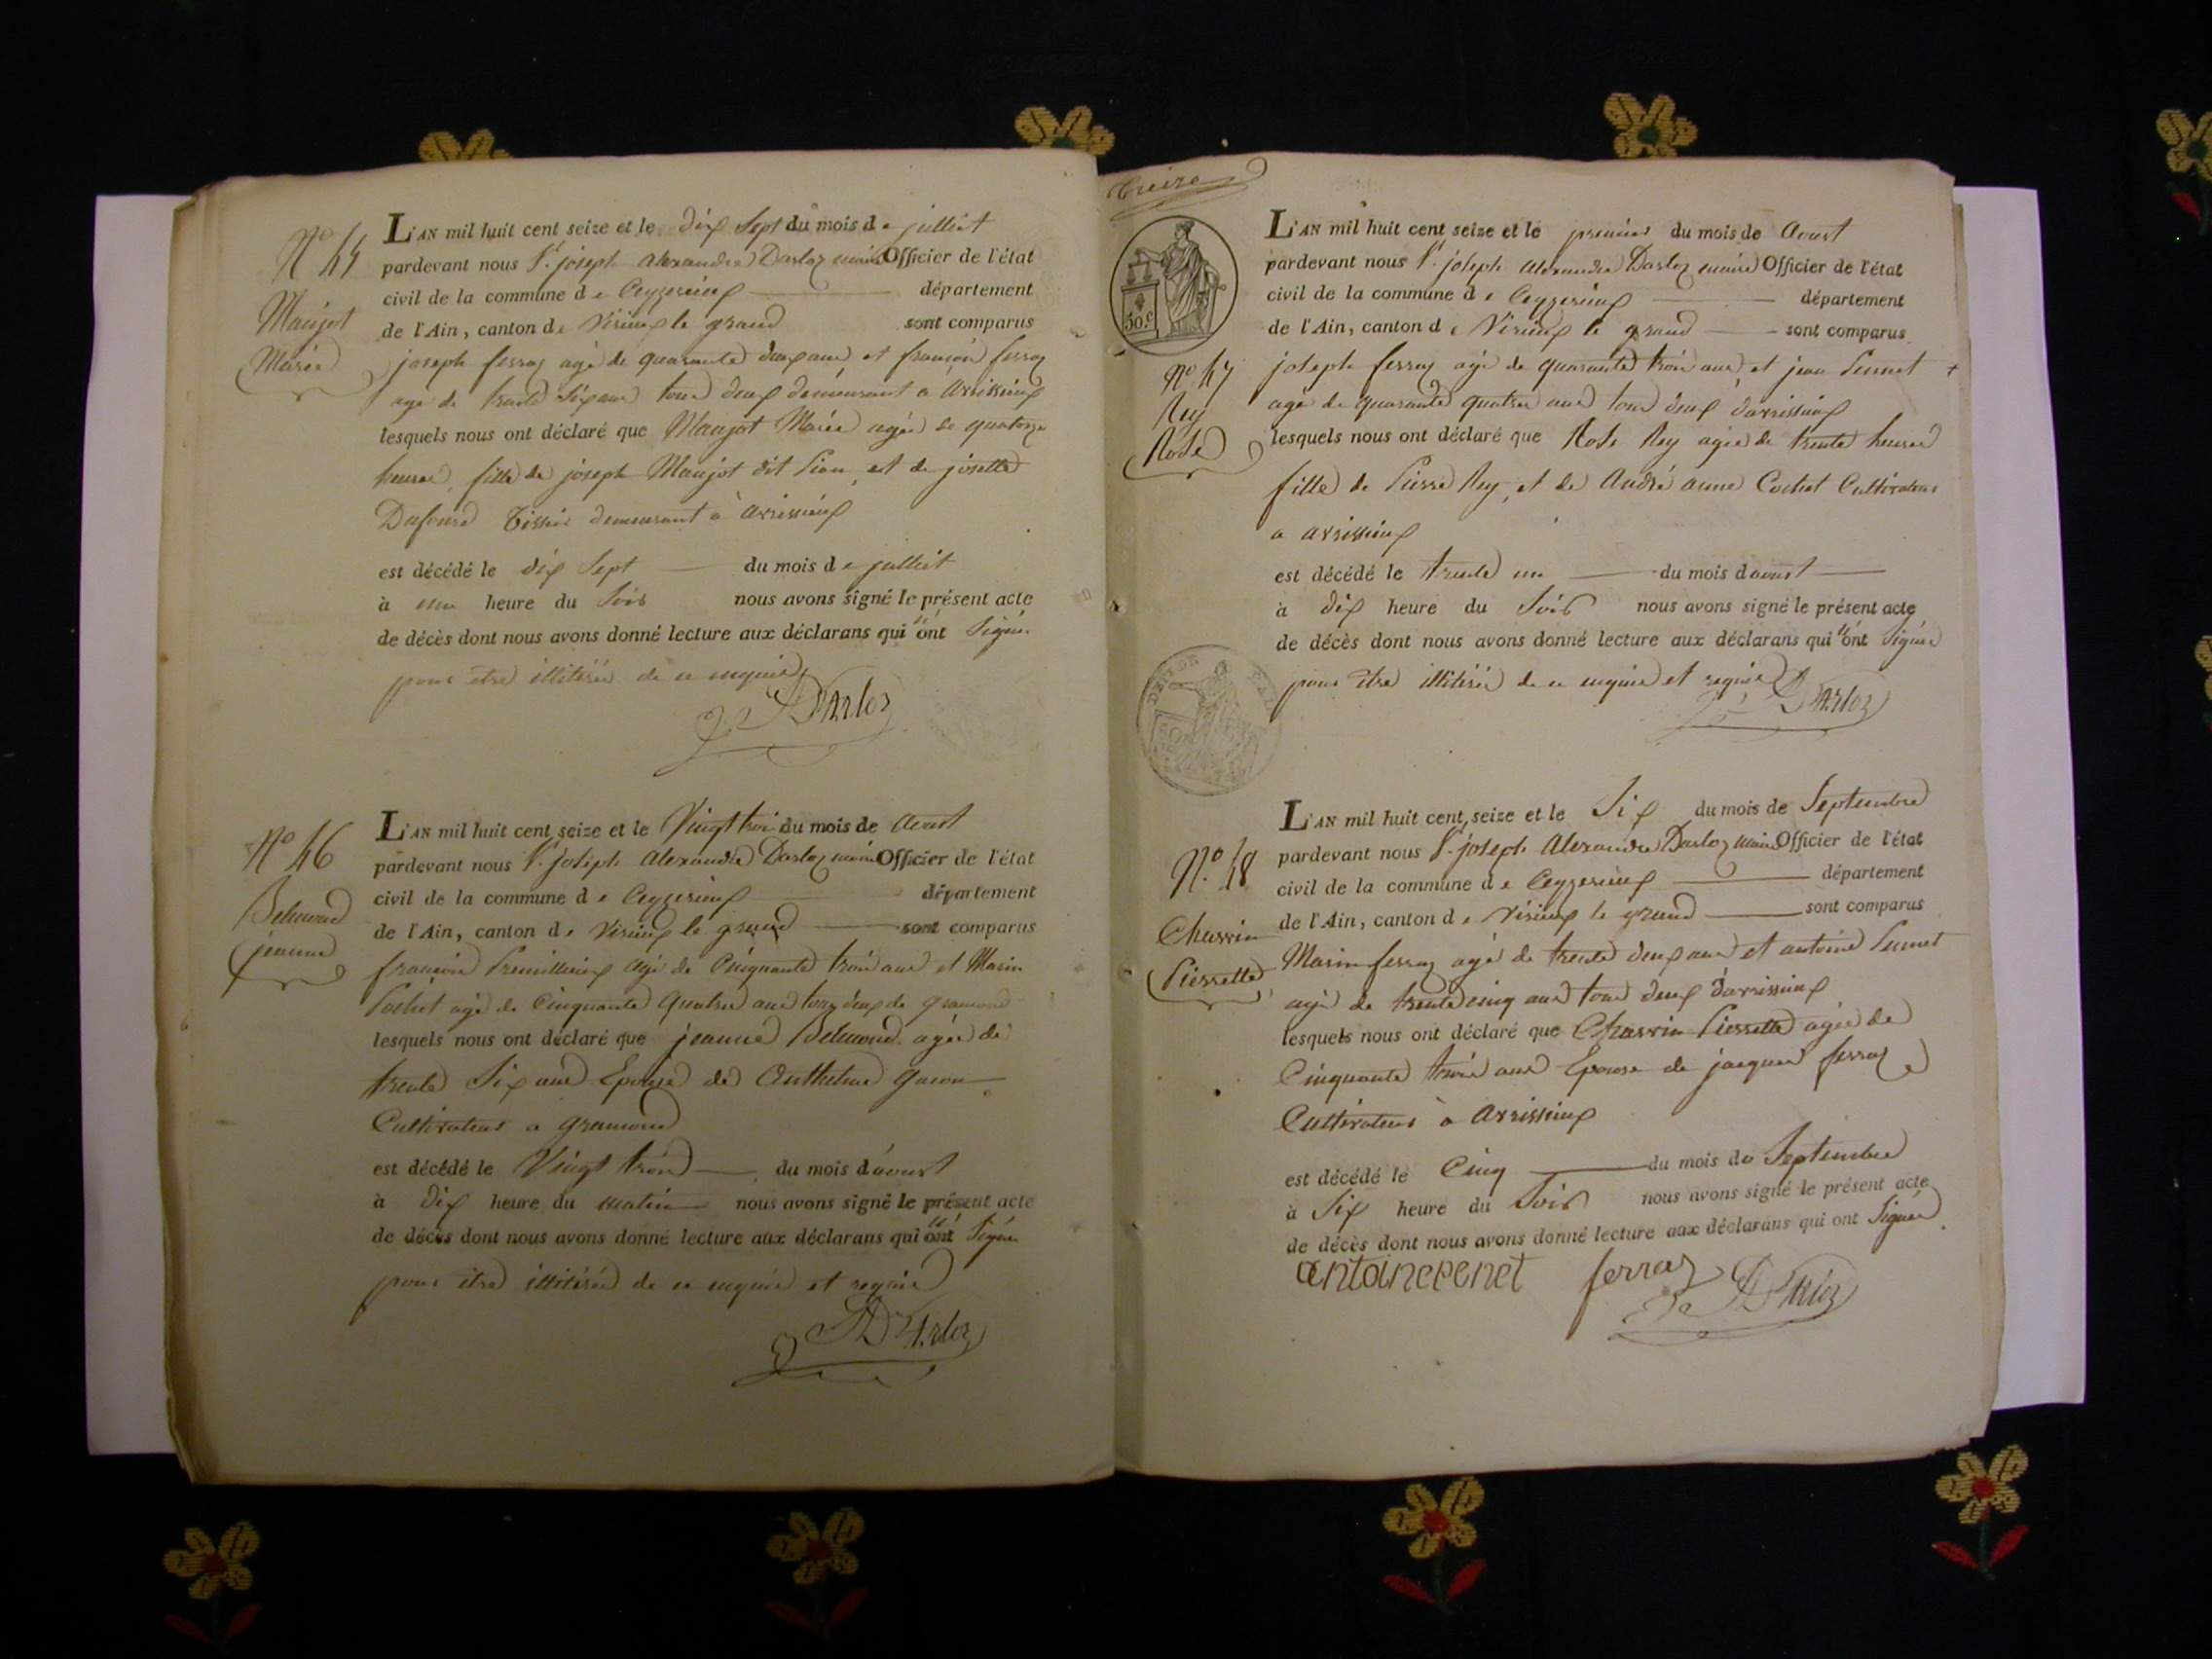 N.º 45
Maujot
Marie
L'AN mil huit cent seize et le dix sept du mois de juilliet
pardevant nous Sr. joseph alexandre Darloz maire Officier de l'état
civil de la commune de Ceyzerieux département
de l'Ain, canton de Virieux le grand sont comparus
joseph ferraz agé de quarante deux ans et françois ferraz
agé de trente six ans tous deux demeurant a arissieux
lesquels nous ont déclaré que Maujot Marie agée de quatorze
heures, fille de joseph Maujot dit Pion, et de josette
Dufour Tissier demeurant à arissieux
est décédé le dix sept du mois de juilliet
à une heure du soir nous avons signé le présent acte
de décès dont nous avons donné lecture aux déclarans qui n'ont signés
pour etre illitérés de ce enquis
J A DArloz
N.º 46
jeanne
L'AN mil huit cent seize et le Vingt trois du mois de aoust
pardevant nous Sr. joseph alexandre Darloz maire Officier de l'état
civil de la commune de Ceyzerieux département
de l'Ain, canton de Virieux le grand sont comparus
françois Premillieux agé de Cinquante trois ans et Marin
Pochet agé de Cinquante quatre ans tous deux de gramond
lesquels nous ont déclaré que jeanne agée de
trente six ans Epouse de Anthelme gacon
Cultivateur a gramond
est décédé le Vingt trois du mois d'aoust
à dix heure du matin nous avons signé le présent acte
de décès dont nous avons donné lecture aux déclarans qui n'ont signés
pour etre illitérés de ce enquis et requis
J A DArloz
treize
50 c
N.º 47
Rey
Rose
L'AN mil huit cent seize et le premier du mois de aoust
pardevant nous Sr. joseph alexandre Darloz maire Officier de l'état
civil de la commune de Ceyzerieux département
de l'Ain, canton de Virieux le grand sont comparus
joseph ferraz agé de quarante trois ans et jean Pennet
agé de quarante quatre ans tous deux darissieux
lesquels nous ont déclaré que Rose Rey agée de trente heures
fille de Pierre Rey, et de André anne Cochet Cultivateur
a arissieux
est décédé le trente un du mois d'aoust
à dix heure du soir nous avons signé le présent acte
de décès dont nous avons donné lecture aux déclarans qui n'ont signés
pour etre illitérés de ce enquis et requis
J A DArloz
N.º 48
Charvin
Pierrette
L'AN mil huit cent seize et le six du mois de septembre
pardevant nous Sr. joseph alexandre Darloz maire Officier de l'état
civil de la commune de Ceyzerieux département
de l'Ain, canton de Virieux le grand sont comparus
Marin ferraz agé de trente deux ans et antoine Pennet
agé de trente cinq ans tous deux darissieux
lesquels nous ont déclaré que Charvin Pierrette agée de
Cinquante trois ans Epouse de jacques ferraz
Cultivateur à arissieux
est décédé le Cinq du mois de septembre
à six heure du soir nous avons signé le présent acte
de décès dont nous avons donné lecture aux déclarans qui ont signés
antoine penet ferraz J A DArloz